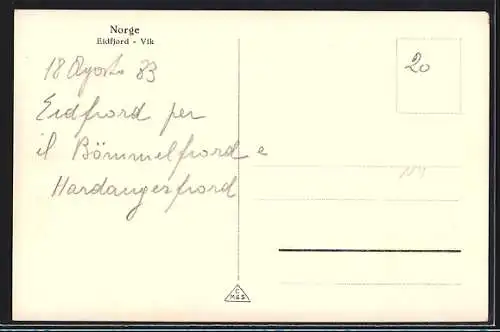 Norge
Eidfjord - Vik
18 Agosto 83
Eidfiord per
il Bömmelfiord e
Hardangerfiord
20
C
M&S